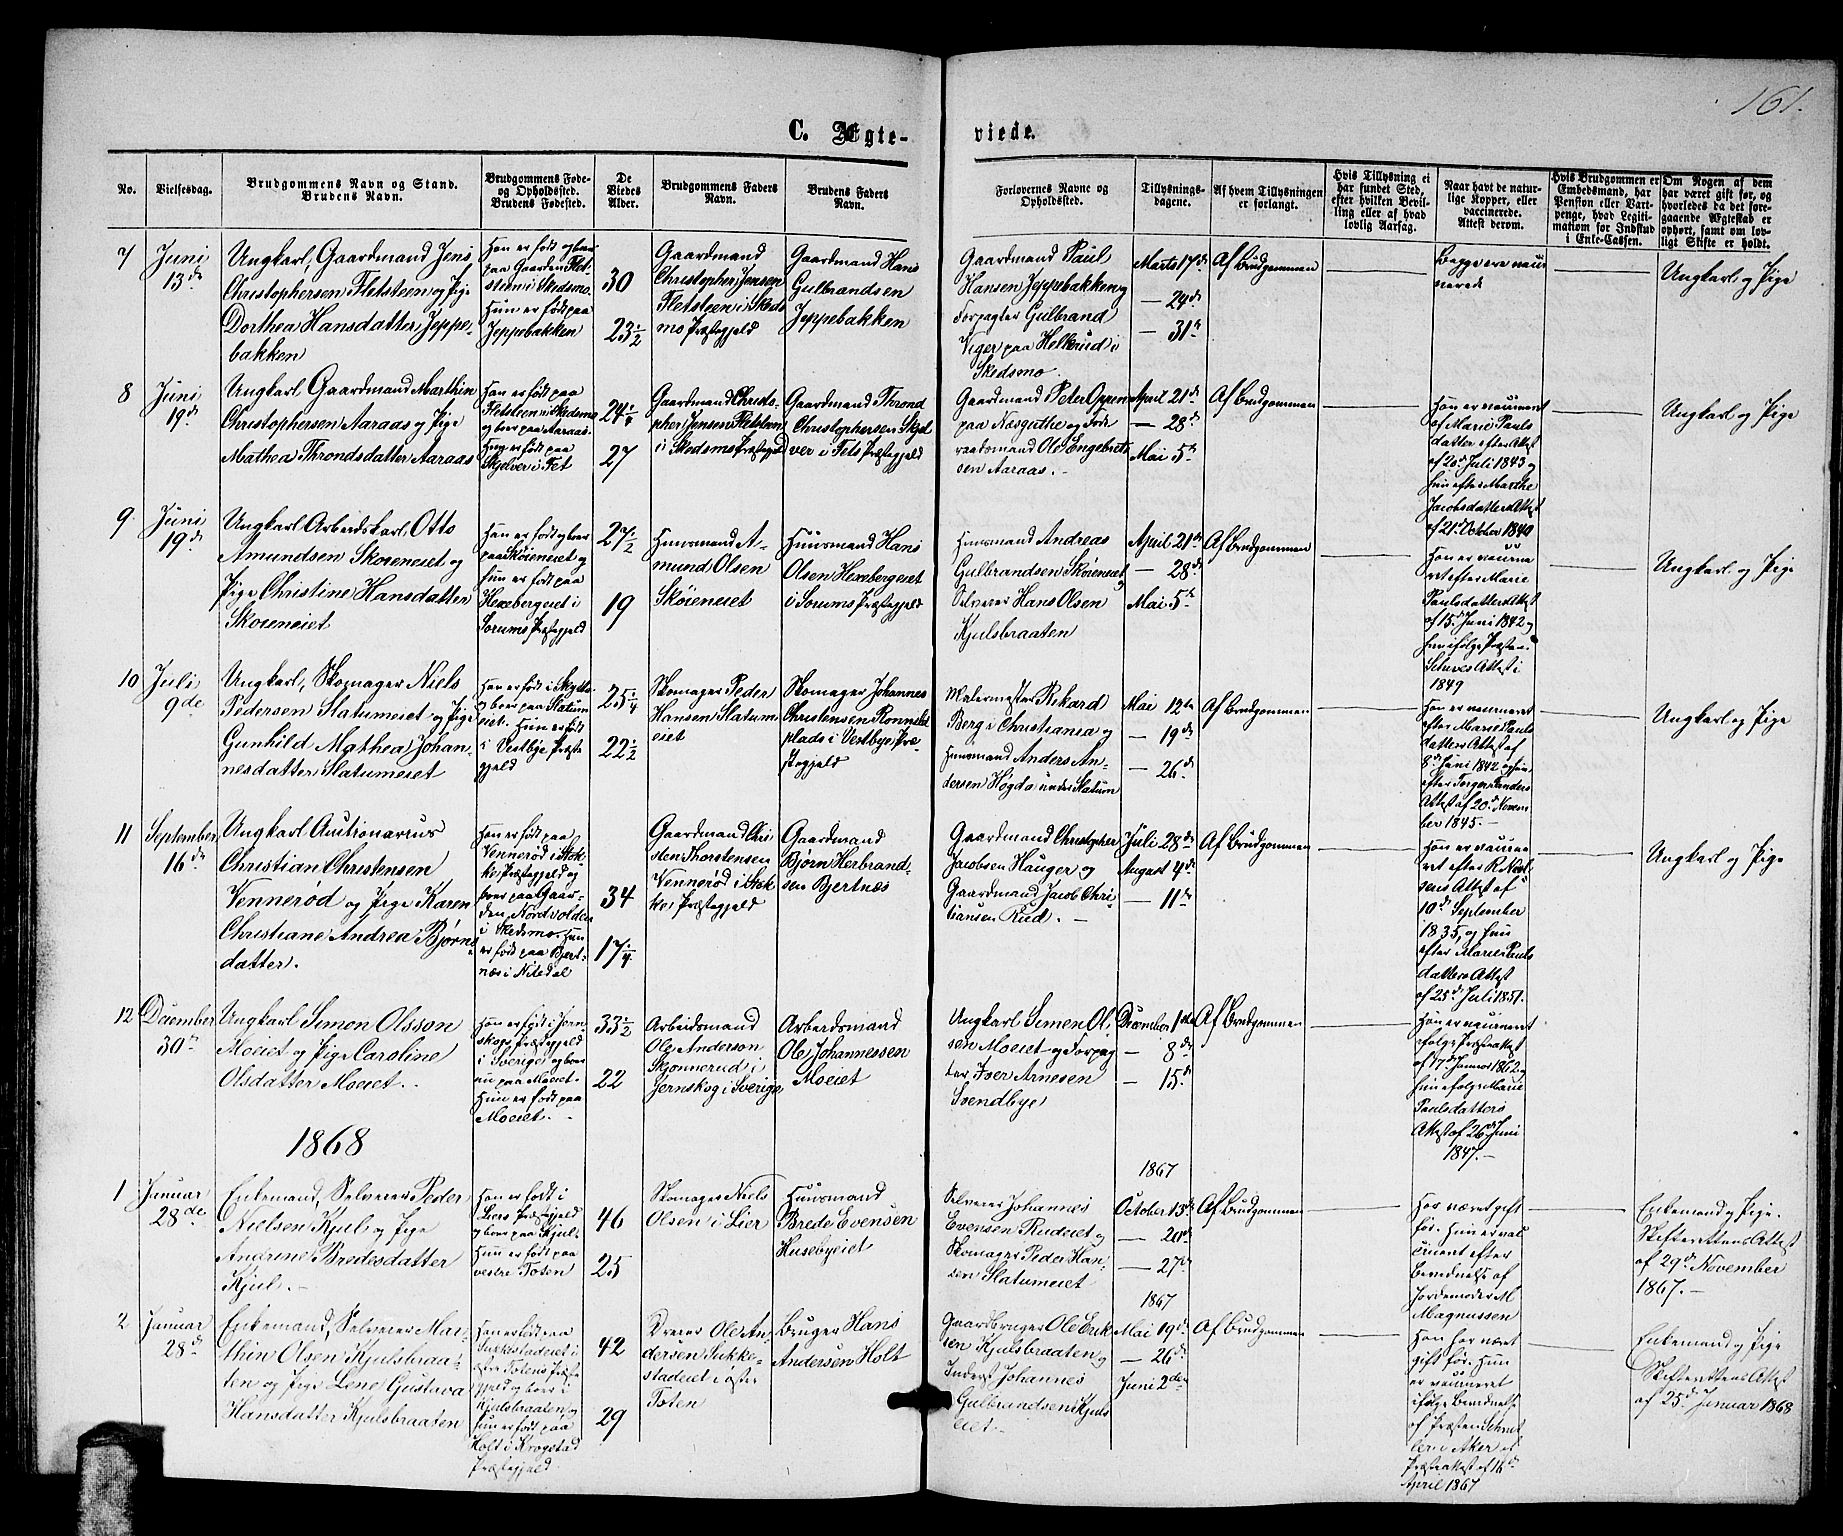 161.
C. Ægte-
viede.
No.
Vielsesdag.
Brudgommens Navn og Stand.
Brudens Navn.
Brudgommens Føde-
og Opholdsted.
Brudens Fødested.
De
Viedes
Alder.
Brudgommens Faders
Navn.
Brudens Faders
Navn.
Forlovernes Navne og
Opholdsted.
Tillysnings-
dagene.
Af hvem Tillysningen
er forlangt.
Hvis Tillysning ei
har fundet Sted,
efter hvilken Bevil-
ling eller af hvad
lovlig Aarsag.
Naar havt de natur-
lige Kopper, eller
vaccinerede.
Attest derom.
Hvis Brudgommen er
Embedsmand, har
Pension eller Vart-
penge, hvad Legiti-
mation for Indskud
i Enke-Cassen.
Om Nogen af dem
har været gift før, og
hvorledes da det fore-
gaaende Ægteskab er
ophørt, samt om lov-
ligt Skifte er holdt.
7
Juni
13de
Ungkarl, Gaardmand Jens
Christophersen Fletsteen og Pige
Dorthea Hansdatter Jeppe-
bakken
Han er født og boer
paa Gaarden Flet-
steen i Skedsmo.
Hun er født paa
Jeppebakken
30
23 1/2
Gaardmand
Christopher Jensen
Fletsteen i Skeds
mo Præstegjeld
Gaardmand Hans
Gulbrandsen
Jeppebakken
Gaardmand Paul
Hansen Jeppebakken og
Forpagter Gulbrand
Viger paa Helkrud i
Skedsmo.
Marts 17de
— 24de
— 31te
Af Brudgommen
Begge ere vacci
nerede
Ungkarl og Pige
8
Juni
19de
Ungkarl Gaardmand Marthin
Christophersen Aaraas og Pige
Mathea Throndsdatter Aaraas
Han er født paa
Fletsteen i Skedsmo
og boer paa Aaraas.
Hun er født paa
Skjelver i Fet
24 1/4
27
Gaardmand Christo-
pher Jensen Fletsteen
i Skedsmo Præstegjeld
Gaardmand Thrond
Christophersen Skjel
ver i Fets Præstegjeld
Gaardmand Peter Oppen
paa Næsguthe og Føde
raadsmand Ole Engebrets
sen Aaraas.
April 21de
— 28de
Mai 5te
Af Brudgommen
Han er vaccineret
af Marie Pauls
datter efter Attest
af 20de Juli 1843 og
hun efter Marthe
Jacobsdatters Attest
af 21de October 1840
Ungkarl og Pige
9
Juni
19de
Ungkarl Arbeidskarl Otto
Amundsen Skoieneiet og
Pige Christine Hansdatter
Skoieneiet
Han er født og boer
paa Skøieneiet og
hun er født paa
Hexebergeiet i
Sorums Præstegjeld
27 1/2
19
Huusmand A-
mund Olsen
Skøieneiet
Huusmand Hans
Olsen Hexebergeiet
i Sorums Præstegjeld
Huusmand Andreas
Gulbrandsen Skøieneiet og
Selveier Hans Olsen
Kjulsbraaten
April 21de
— 28de
Mai 5te
Af Brudgommen
Han er vaccine
ret efter Marie
Paulsdatters Attest
af 15de Juni 1842 og
hun ifølge Præsten
Attest i
1849
Ungkarl og Pige
10
Juli
9de
Ungkarl, Skomager Niels
Pedersen Slatumeiet og Pige
Gunhild Mathea Johan-
nesdatter Slatumeiet
Han er født i
og boer paa Slatum
eiet. Hun er født
i Vestbye Præste
gjeld
25 1/4
22 1/2
Skomager Peder
Hansen Slatum
eiet
Skomager Johannes
Christensen
plads i Vestbye Præ-
stegjeld
Malermester Rikard
Berg i Christiania og
Huusmand Anders An-
dersen Høgda under Slatum
Mai 12te
— 19de
— 26de
Af Brudgommen
Han er vaccineret
efter Marie Pauls
datters Attest af
8de Juni 1842 og hun
efter
Attest af 20de Novem
ber 1845.
Ungkarl og Pige
11
September
16de
Ungkarl Auctionarius
Christian Christensen
Vennerød og Pige Karen
Christiane Andrea Bjørns
datter.
Han er født paa
Vennerød i Stok-
ke Præstegjeld og
boer paa Gaar-
den Nordvolden
i Skedsmo. Hun
er født paa Bjert-
næs i Nitedal
34
17 1/4
Gaardmand Chri
sten Thorstensen
Vennerød i Stok
ke Præstegjeld
Gaardmand
Bjørn Herbrand-
sen Bjertnæs
Gaardmand Christopher
Jacobsen Hauger og
Gaardmand Jacob Chri-
stiansen Rud.
Juli 28de
August 4de
— 11te
Af Brudgommen
Han er vaccine
ret efter
Attest af
10de September
1835, og hun
efter Marie Pauls
datters Attest
af 25de Juli 1851.
Ungkarl og Pige
12
December
30te
Ungkarl Simon Olsson
Moeiet og Pige Caroline
Olsdatter Moeiet.
Han er født i Jern-
skogs Præstegjeld
i Sverige og boer
nu paa Moeiet.
Hun er født paa
Moeiet.
33 1/2
22
Arbeidsmand
Ole Anderson
Skjønnerud i
Jernskog i Sverige
Arbeidsmand
Ole Johannessen
Moeiet
Ungkarl Simen Ol-
sen Moeiet og Forpag
ter Iver Arnesen
Svendbye
December 1ste
— 8de
— 15de
Af Brudgommen
Han er vaccineret
ifølge Præsteattest
af 17de Januar 1862 og
hun ifølge Marie
Paulsdatters
Attest af 26de Juni
1847.
1868
1
Januar
28de
Enkemand, Selveier Peder
Nielsen Kjul og Pige
Andrine Bredesdatter
Kjul.
Han er født i
Liers Præstegjeld
og boer paa Kjul.
Hun er født paa
vestre Toten
46
25
Skomager Niels
Olsen i Lier
Huusmand
Brede Evensen
Husebyeiet
Selveier Johannes
Evensen Rudeiet og
Skomager Peder Han-
sen Slatumeiet
1867
October 13de
— 20de
— 27de
Af Brudgommen
Har været gift
før. Hun er vac
cineret efter
Bevidnelse af
Jordemoder M
Magnussen
Enkemand og Pige.
Skifterettens Attest
af 29de November
1867.
2
Januar
28de
Enkemand, Selveier Mar-
thin Olsen Kjulsbraa-
ten og Pige Lene Gustava
Hansdatter Kjulsbraaten
Han er født paa
Sukkestadeiet i
østre Totens Præste
gjeld og boer i
Kjulsbraaten og
hun er født paa
Holt i Krogstad
Præstegjeld
42
29
Dreier Ole An-
dersen Sukke-
stadeiet i østre
Toten
Bruger Hans
Andersen Holt
Gaardbruger Ole Erik
sen Kjulsbraaten og
Inderst Johannes
Gulbrandsen Kjuls
eiet.
1867
Mai 19de
— 26de
Juni 2den
Af Brudgommen
Han har været
gift før. Hun
er vaccineret
ifølge Bevidnelse
af Præsten
i Aker af
Præsteattest af 16de
April 1867
Enkemand og Pige
Skifterettens Attest
af 25de Januar 1868